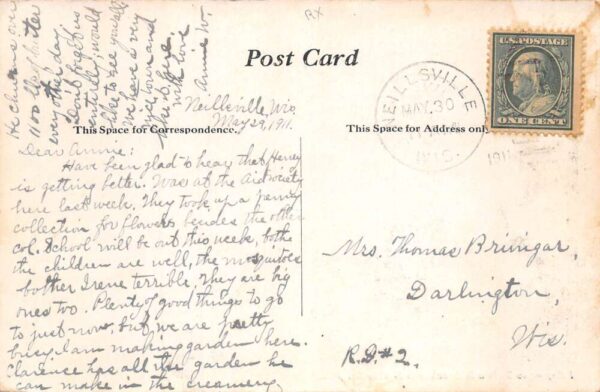 Post Card
NEILLSVILLE
MAY 30
1911
WIS.
U.S. POSTAGE
ONE CENT
This Space for Correspondence.
This Space for Address only
Neillsville, Wis
May 29, 1911.
Dear Annie:
Have been glad to hear that Henry
is getting better. Was at the Aid society
here last week. They took up a penny
collection for flowers besides the other
col. School will be out this week, both
the children are well, the mosquitoes
bother Irene terrible, They are big
ones too. Plenty of good things to go
to just now, but we are pretty
busy. I am making garden here.
Clarence has all the garden he
can make in the creamery.
He churns over
1100 lbs of butter
every other day.
Don't forget us
entirely, would
like to see yourself
we have a very
with love
Annie W.
Mrs. Thomas Bringar,
Darlington,
Wis.
R.D. #2.